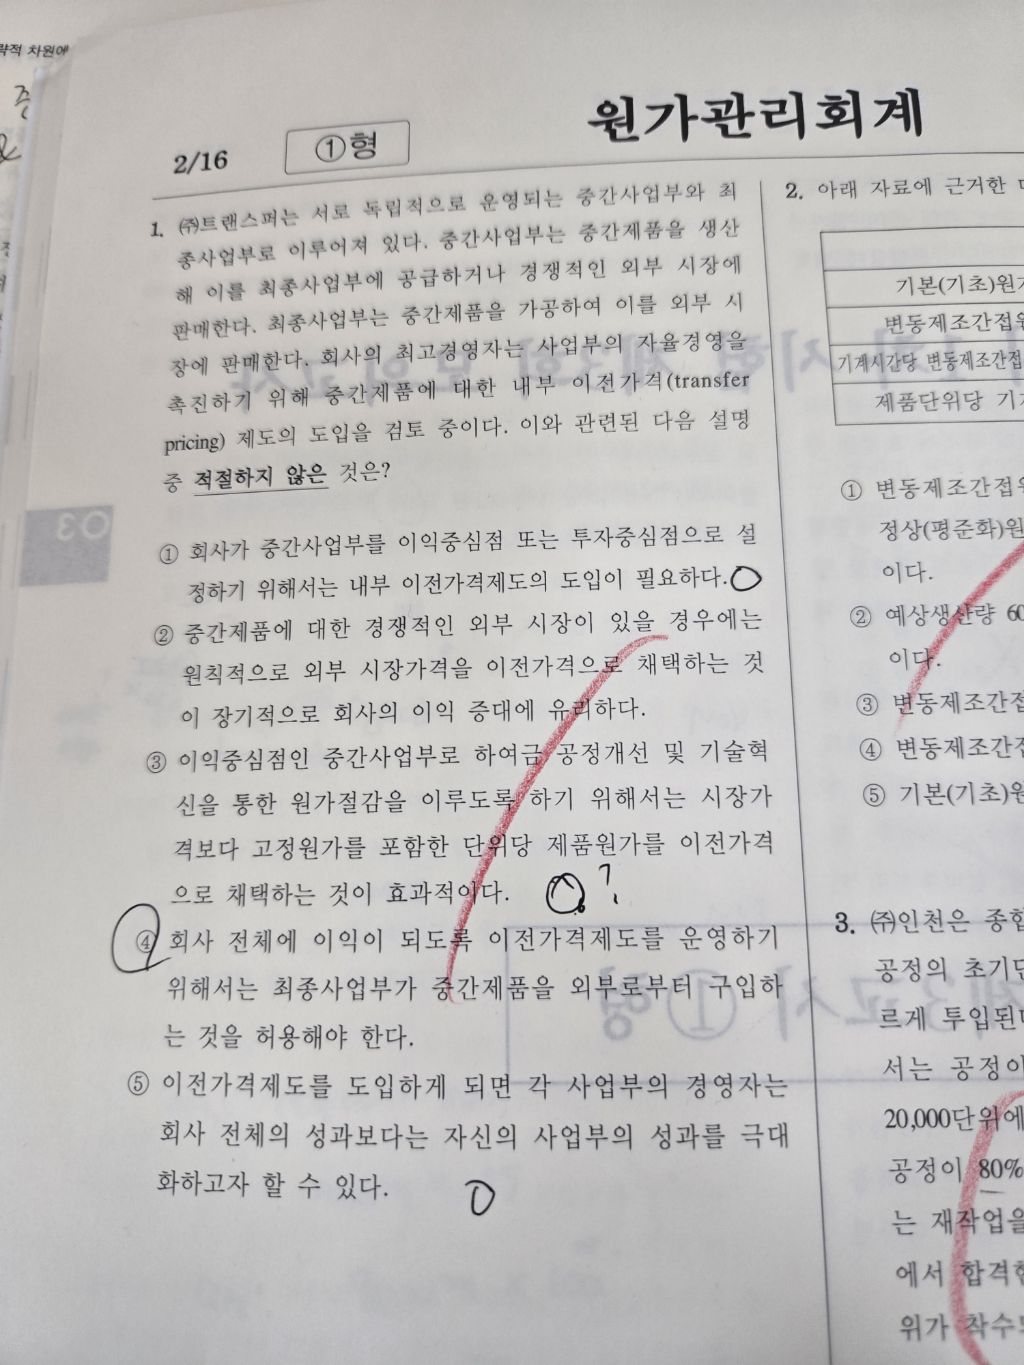 략적 차원에
원가관리회계
2/16
①형
1. ㈜트랜스퍼는 서로 독립적으로 운영되는 중간사업부와 최
종사업부로 이루어져 있다. 중간사업부는 중간제품을 생산
해 이를 최종사업부에 공급하거나 경쟁적인 외부 시장에
판매한다. 최종사업부는 중간제품을 가공하여 이를 외부 시
장에 판매한다. 회사의 최고경영자는 사업부의 자율경영을
촉진하기 위해 중간제품에 대한 내부 이전가격(transfer
pricing) 제도의 도입을 검토 중이다. 이와 관련된 다음 설명
중 적절하지 않은 것은?
① 회사가 중간사업부를 이익중심점 또는 투자중심점으로 설
정하기 위해서는 내부 이전가격제도의 도입이 필요하다.
② 중간제품에 대한 경쟁적인 외부 시장이 있을 경우에는
원칙적으로 외부 시장가격을 이전가격으로 채택하는 것
이 장기적으로 회사의 이익 증대에 유리하다.
③ 이익중심점인 중간사업부로 하여금 공정개선 및 기술혁
신을 통한 원가절감을 이루도록 하기 위해서는 시장가
격보다 고정원가를 포함한 단위당 제품원가를 이전가격
으로 채택하는 것이 효과적이다. ?
④ 회사 전체에 이익이 되도록 이전가격제도를 운영하기
위해서는 최종사업부가 중간제품을 외부로부터 구입하
는 것을 허용해야 한다.
⑤ 이전가격제도를 도입하게 되면 각 사업부의 경영자는
회사 전체의 성과보다는 자신의 사업부의 성과를 극대
화하고자 할 수 있다.
2. 아래 자료에 근거한
기본(기초)원가
변동제조간접원
기계시간당 변동제조간접
제품단위당 기
① 변동제조간접원
정상(평준화)원
이다.
② 예상생산량 60
이다.
③ 변동제조간접
④ 변동제조간접
⑤ 기본(기초)원
3. ㈜인천은 종합
공정의 초기단
르게 투입된다
서는 공정이
20,000단위에
공정이 80%
는 재작업을
에서 합격한
위가 착수되